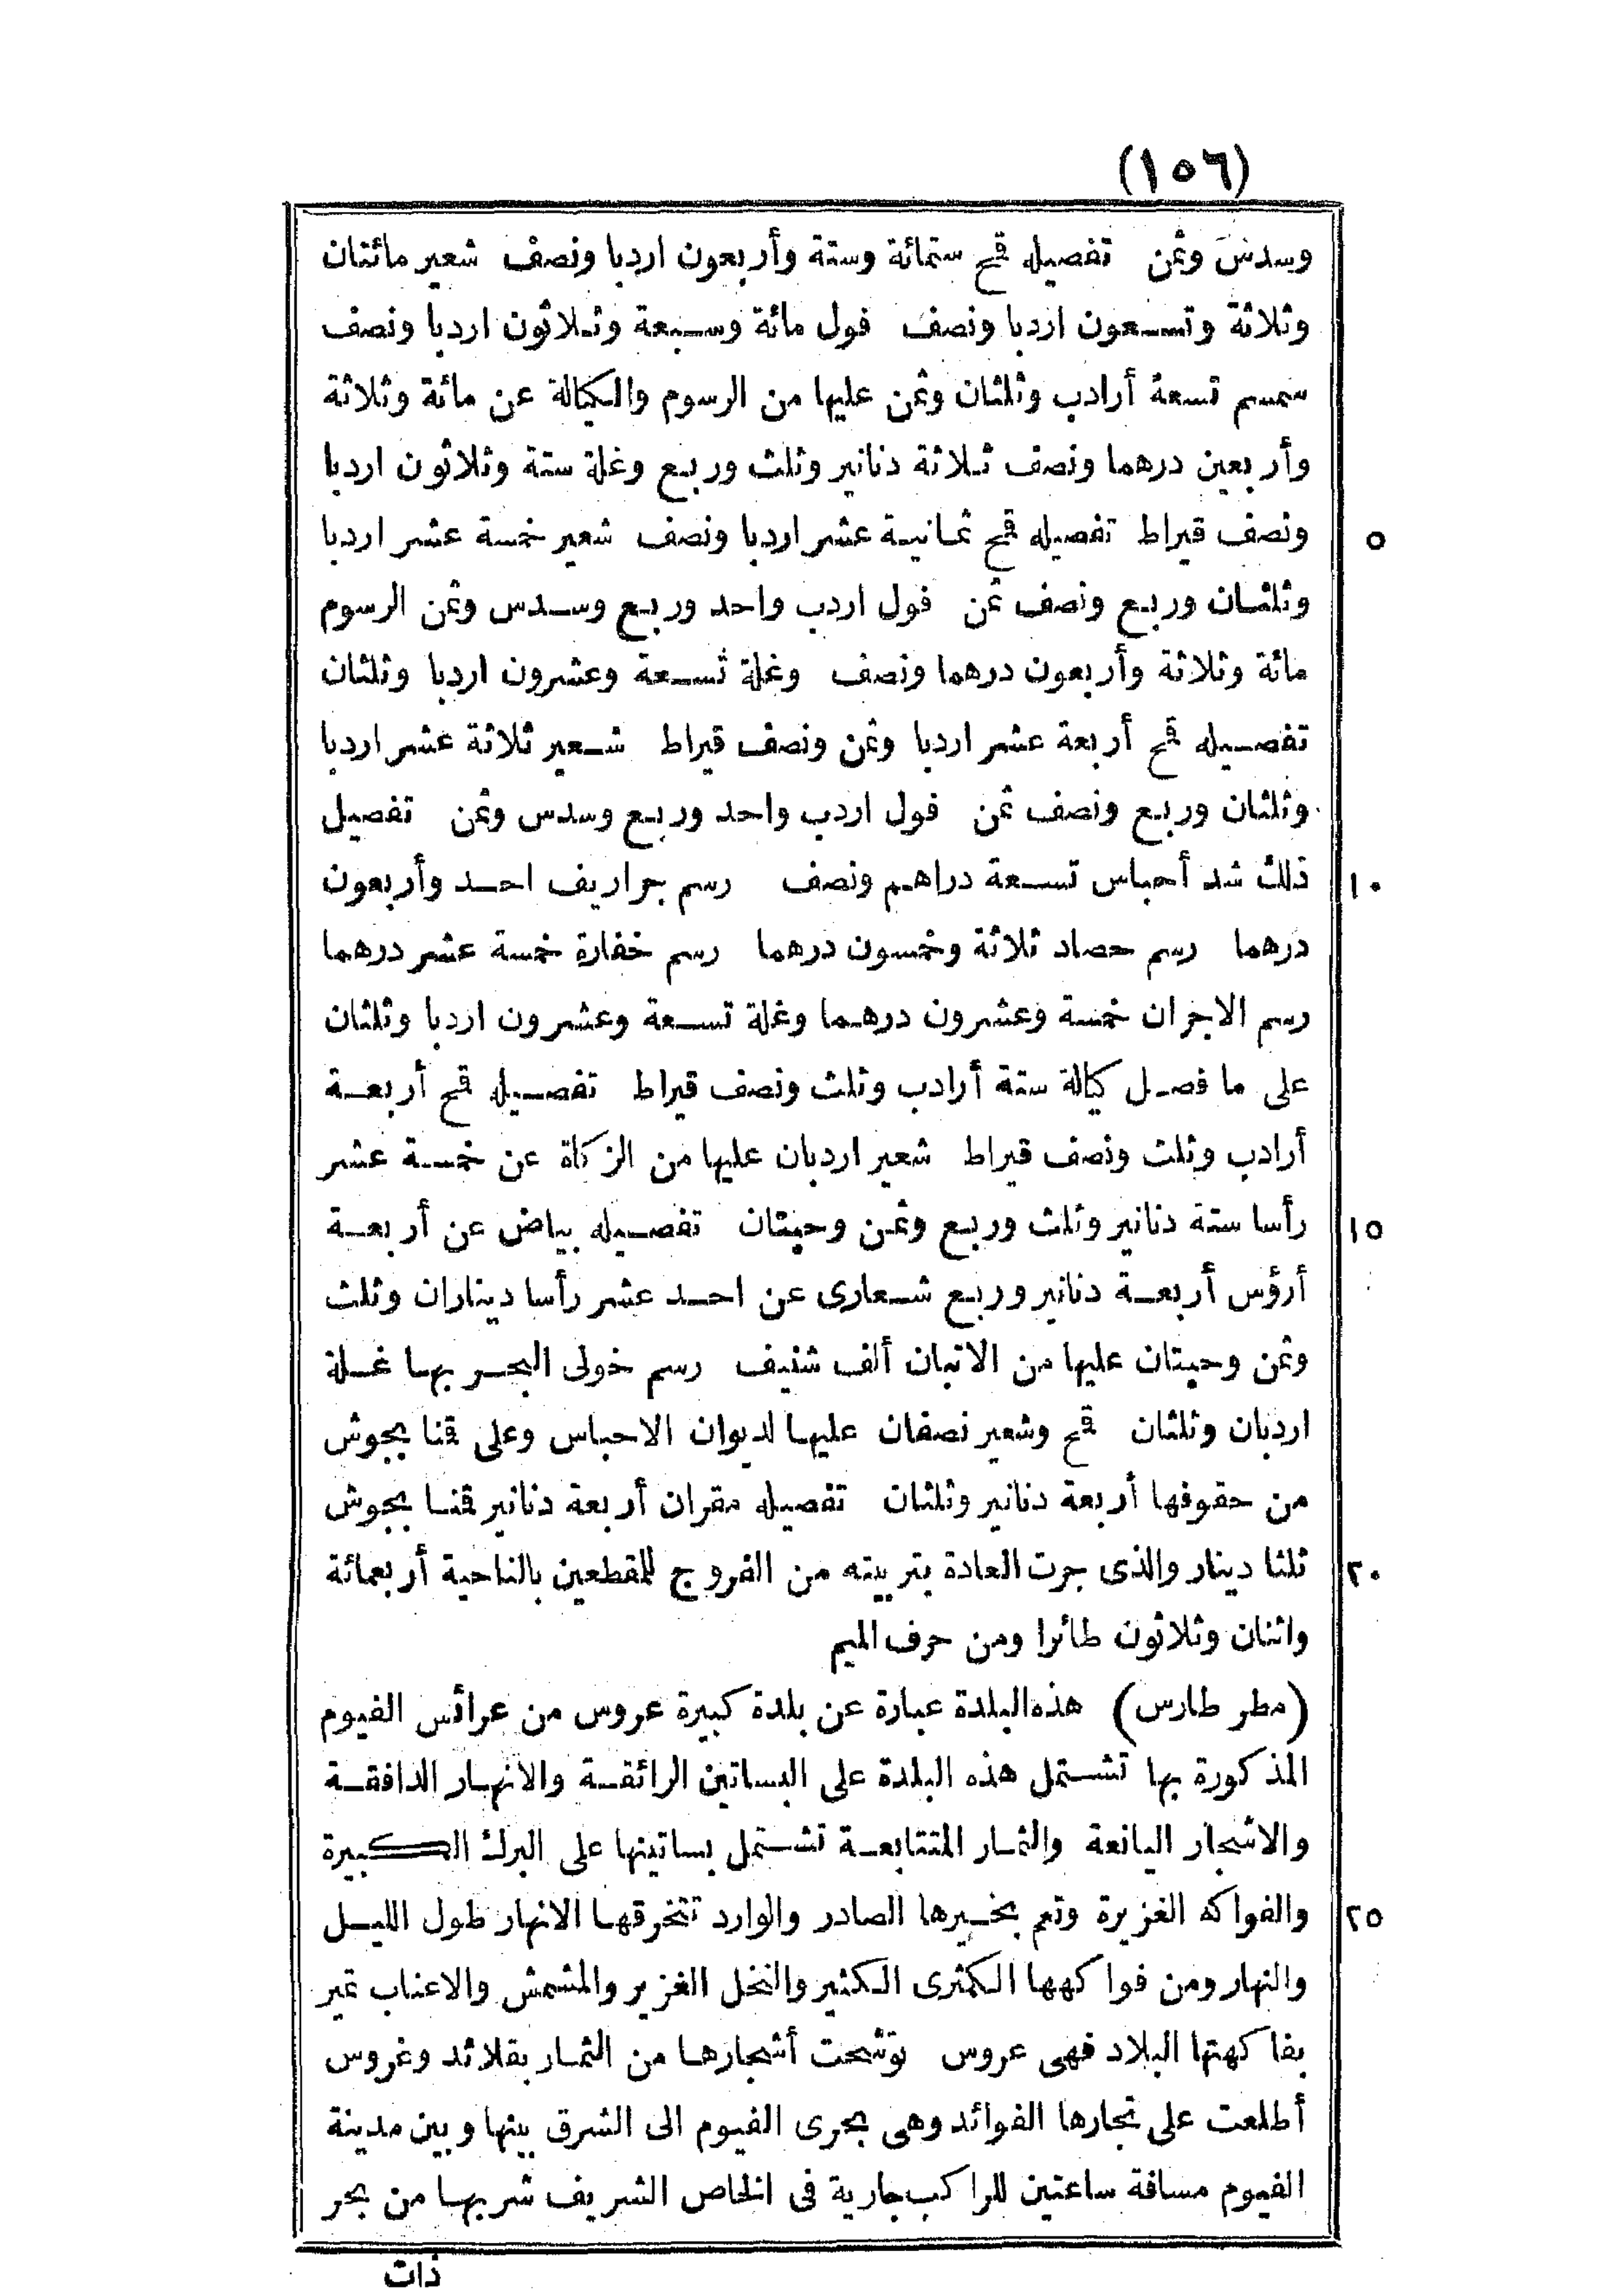 (١٥٦)
وسدس وثمن تفصيله قمح ستمائة وستة وأربعون اردبا ونصف شعير مائتان
وثلاثة وتسعون اردبا ونصف فول مائة وسبعة وثلاثون اردبا ونصف
سمسم تسعة أرادب وثلثان وثمن عليها من الرسوم والكيالة عن مائة وثلاثة
وأربعين درهما ونصف ثلاثة دنانير وثلث وربع وغلة ستة وثلاثون اردبا
ونصف قيراط تفصيله قمح ثمانية عشر اردبا ونصف شعير خمسة عشر اردبا ٥
وثلثان وربع ونصف ثمن فول اردب واحد وربع وسدس وثمن الرسوم
مائة وثلاثة وأربعون درهما ونصف وغلة تسعة وعشرون اردبا وثلثان
تفصيله قمح أربعة عشر اردبا وثمن ونصف قيراط شعير ثلاثة عشر اردبا
وثلثان وربع ونصف ثمن فول اردب واحد وربع وسدس وثمن تفصيل
ذلك شد أحباس تسعة دراهم ونصف رسم جراريف احد وأربعون ١٠
درهما رسم حصاد ثلاثة وخمسون درهما رسم خفارة خمسة عشر درهما
رسم الاجران خمسة وعشرون درهما وغلة تسعة وعشرون اردبا وثلثان
على ما فصل كيالة ستة أرادب وثلث ونصف قيراط تفصيله قمح أربعة
أرادب وثلث ونصف قيراط شعير اردبان عليها من الزكاة عن خمسة عشر
رأسا ستة دنانير وثلث وربع وثمن وحبتان تفصيله بياض عن أربعة ١٥
أرؤس أربعة دنانير وربع شعارى عن احد عشر رأسا ديناران وثلث
وثمن وحبتان عليها من الاتبان ألف شنيف رسم خولى البحر بها غلة
اردبان وثلثان قمح وشعير نصفان عليها لديوان الاحباس وعلى قنا بجوش
من حقوفها أربعة دنانير وثلثان تفصيله مقران أربعة دنانير قنا بجوش
ثلثا دينار والذى جرت العادة بتربيته من الفروج للمقطعين بالناحية أربعمائة ٢٠
واثنان وثلاثون طائرا ومن حرف الميم
(مطر طارس) هذه البلدة عبارة عن بلدة كبيرة عروس من عرائس الفيوم
المذكورة بها تشتمل هذه البلدة على البساتين الرائقة والانهار الدافقة
والاشجار اليانعة والثمار المتتابعة تشتمل بساتينها على البرك الكبيرة
والفواكه الغزيرة وتعم بخيرها الصادر والوارد تتخرقها الانهار طول الليل ٢٥
والنهار ومن فواكهها الكمثرى الكثير والنخل الغزير والمشمش والاعناب تمير
بفاكهتها البلاد فهى عروس توشحت أشجارها من الثمار بقلائد وغروس
أطلعت على تجارها الفوائد وهى بحرى الفيوم الى الشرق بينها وبين مدينة
الفيوم مسافة ساعتين للراكب جارية فى الخاص الشريف شربها من بحر
ذات